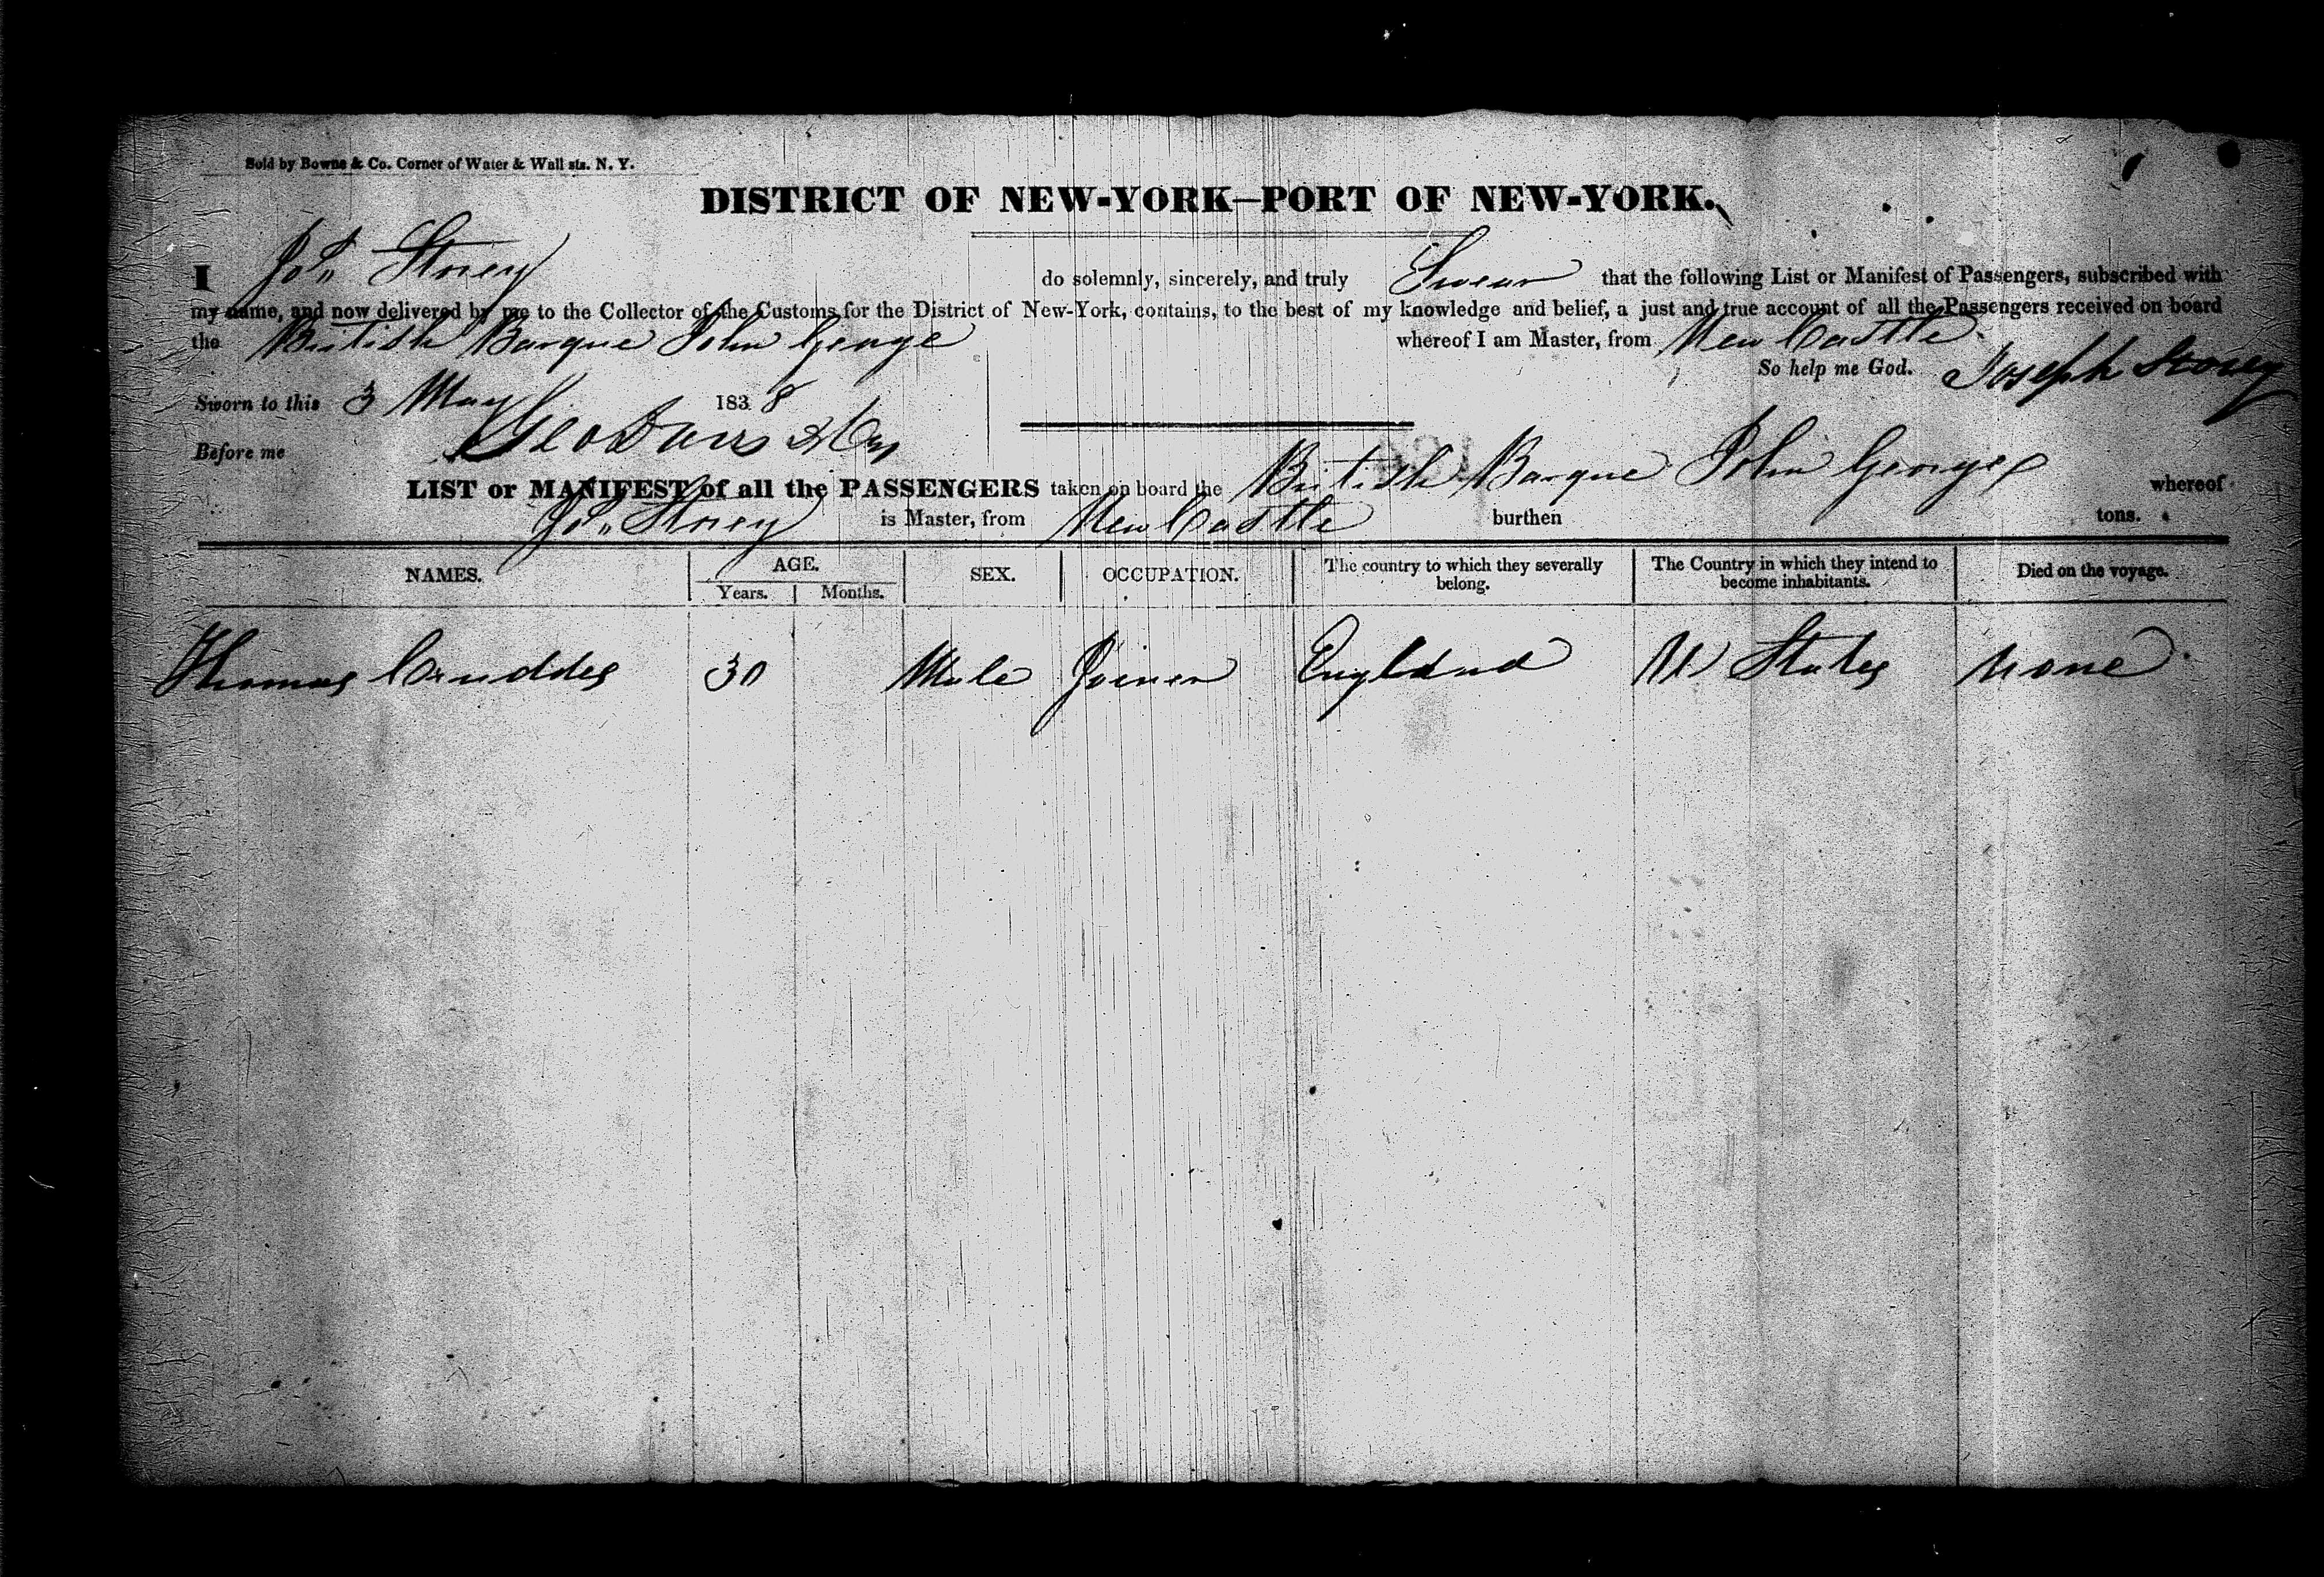 Sold by Bowne & Co. Corner of Water & Wall sts. N. Y.
DISTRICT OF NEW-YORK—PORT OF NEW-YORK.
I Jos. Storey do solemnly, sincerely, and truly Swear that the following List or Manifest of Passengers, subscribed with
my name, and now delivered by me to the Collector of the Customs for the District of New-York, contains, to the best of my knowledge and belief, a just and true account of all the Passengers received on board
the British Barque John George whereof I am Master, from New Castle
So help me God. Joseph Storey
Sworn to this 3 May 1838
Before me Geo Davis
LIST or MANIFEST of all the PASSENGERS taken on board the British Barque John George whereof
Jos. Storey is Master, from New Castle burthen tons.
NAMES. AGE. Years. Months. SEX. OCCUPATION. The country to which they severally belong. The Country in which they intend to become inhabitants. Died on the voyage.
Thomas Cruddes 30 Male Joiner England U States None